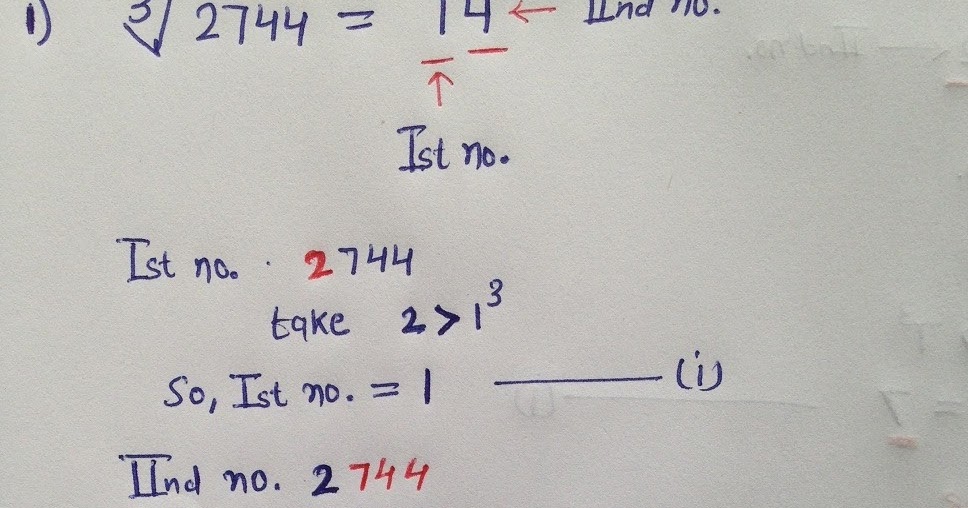 1) ∛2744 = 14 ← IInd no.
↑
Ist no.
Ist no. 2744
take 2 > 1³
So, Ist no. = 1 ——— (i)
IInd no. 2744